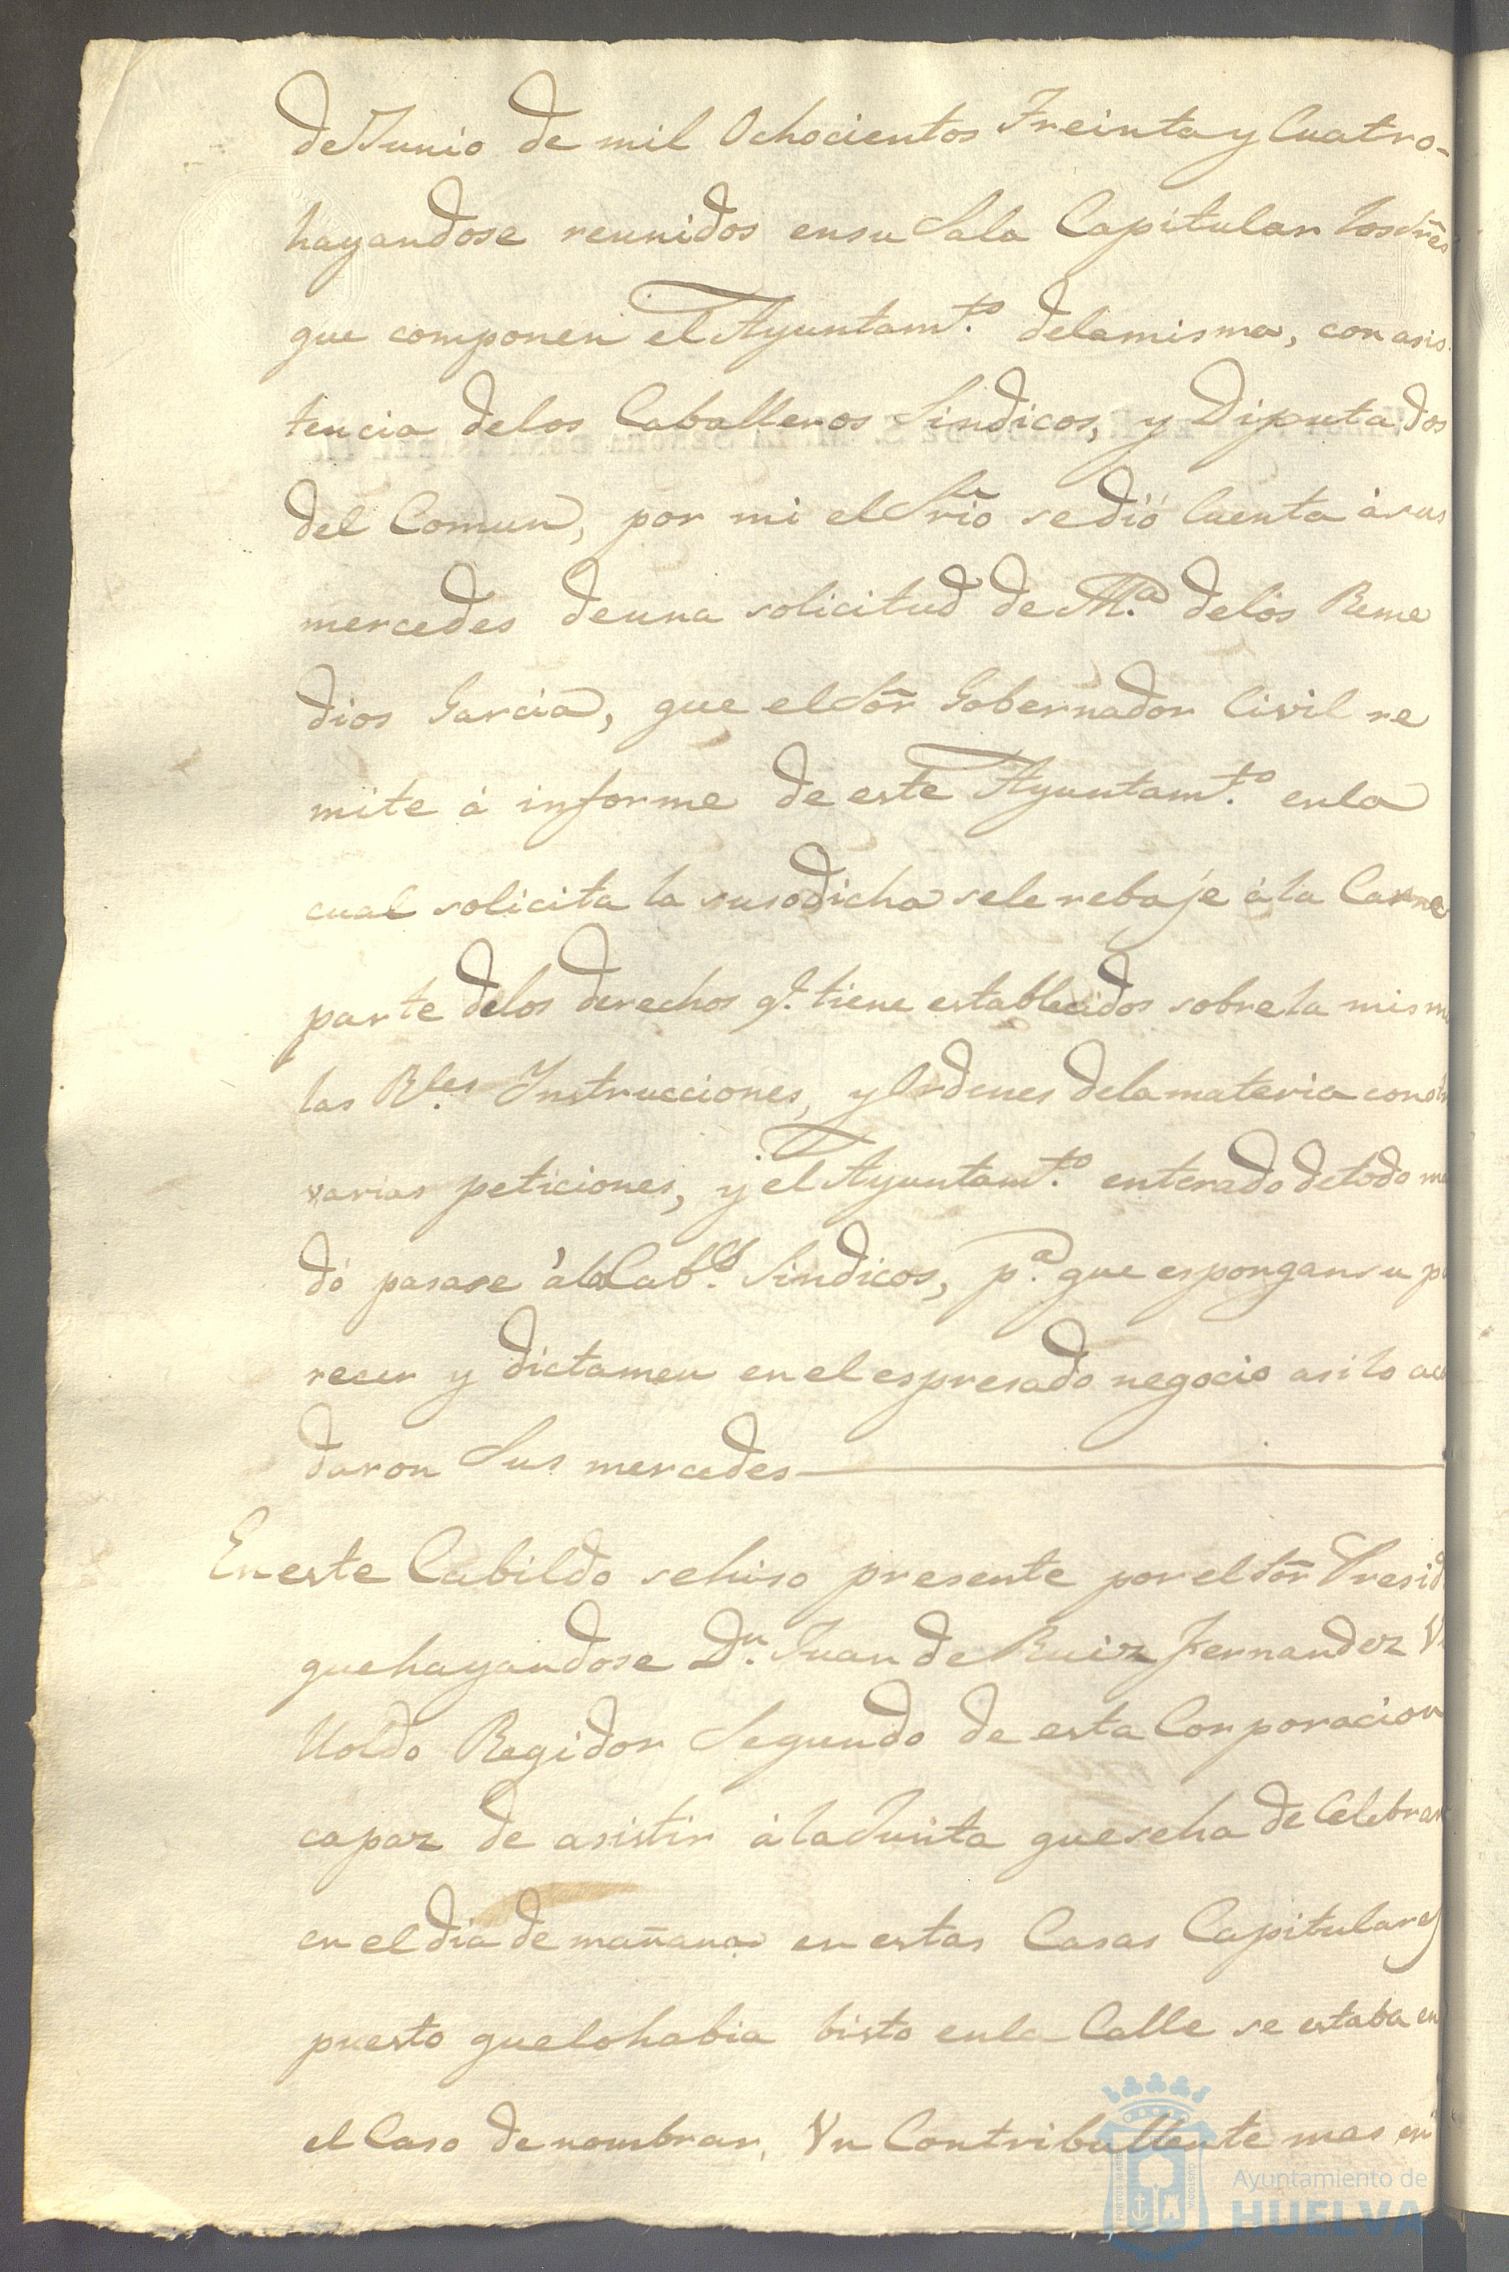 de Junio de mil Ochocientos Treinta y Cuatro-
hayandose reunidos en su Sala Capitular los Sres
que componen el Ayuntam.to de la misma, con asis
tencia de los Caballeros Sindicos, y Diputados
del Comun, por mi el Srio se dió Cuenta à sus
mercedes de una solicitud de M.a de los Reme
dios Garcia, que el Sor Gobernador Civil re
mite á informe de este Ayuntam.to en la
cual solicita la susodicha se le rebaje á la Carne
parte de los derechos q.e tiene establecidos sobre la mism
las R.les Instrucciones, y Ordenes de la materia con
varias peticiones, y el Ayuntam.to enterado de todo
dó pasase à los Cab.os Sindicos, p.a que espongan su p
recer y dictamen en el espresado negocio asi lo
daron Sus mercedes
En este Cabildo se hiso presente por el Sor Presid
que hayandose D.n Juan de Ruiz Fernandez
Uoldo Regidor Segundo de esta Corporacion
capaz de asistir à la Junta que se ha de Celebrar
en el dia de mañana en estas Casas Capitulares
puesto que lo habia bisto en la Calle se estaba en
el Caso de nombrar, Un Contribullente mas en
Ayuntamiento de
HUELVA